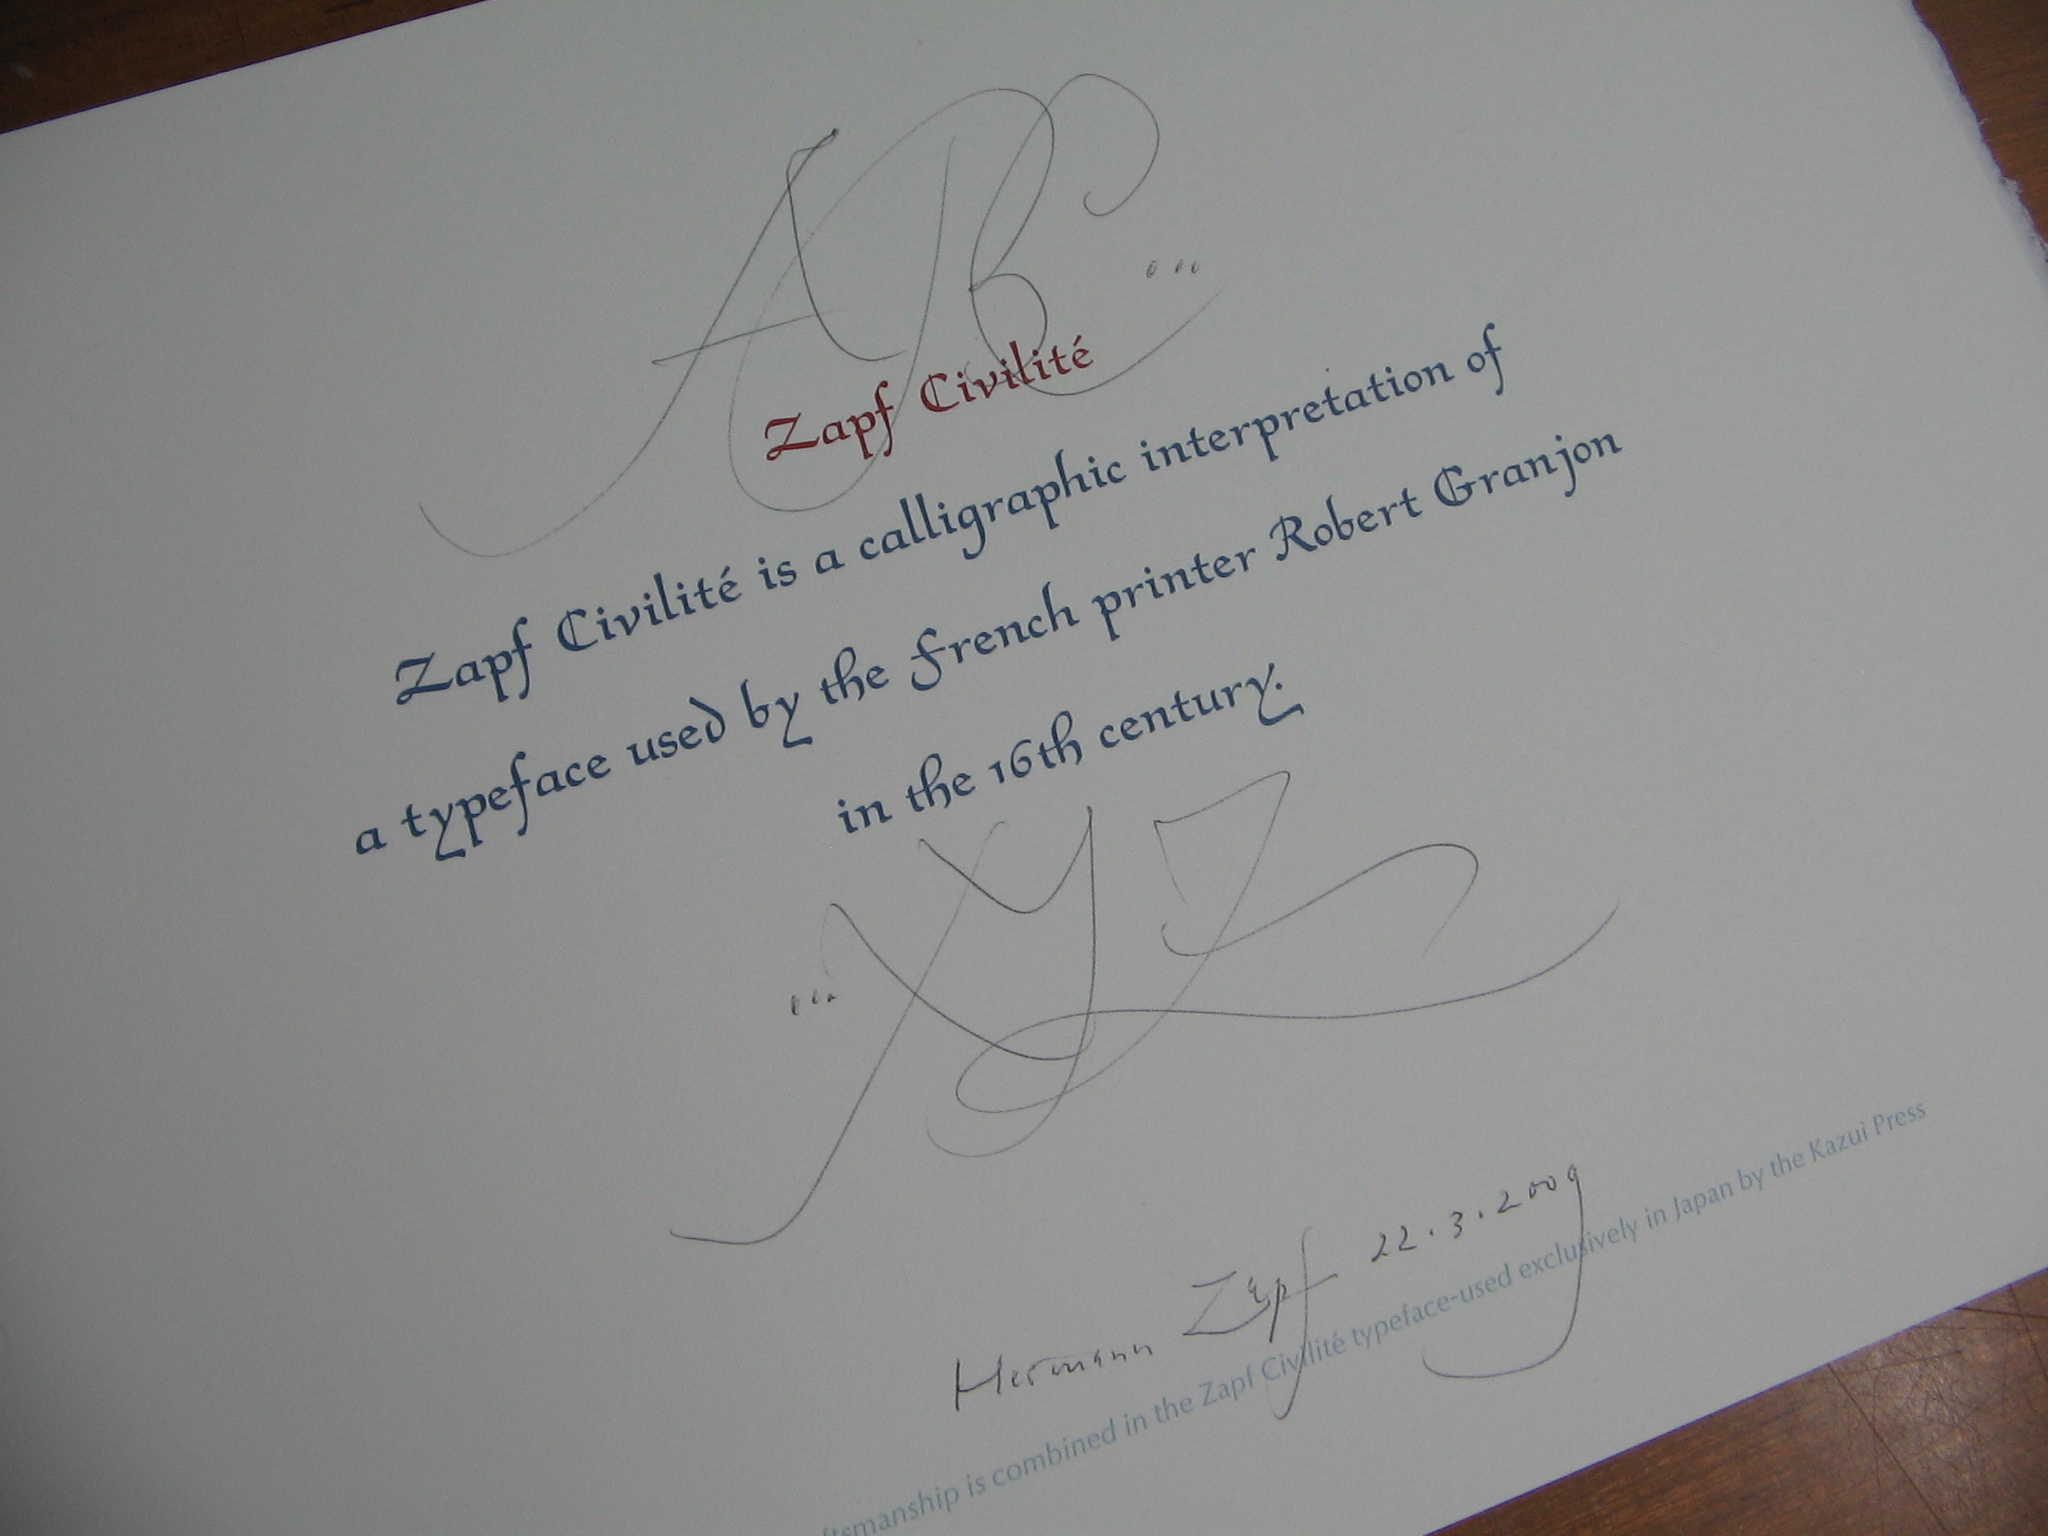 ABC...
Zapf Civilité
Zapf Civilité is a calligraphic interpretation of
a typeface used by the French printer Robert Granjon
in the 16th century.
...XYZ
Hermann Zapf 22.3.2009
ftsmanship is combined in the Zapf Civilité typeface-used exclusively in Japan by the Kazui Press